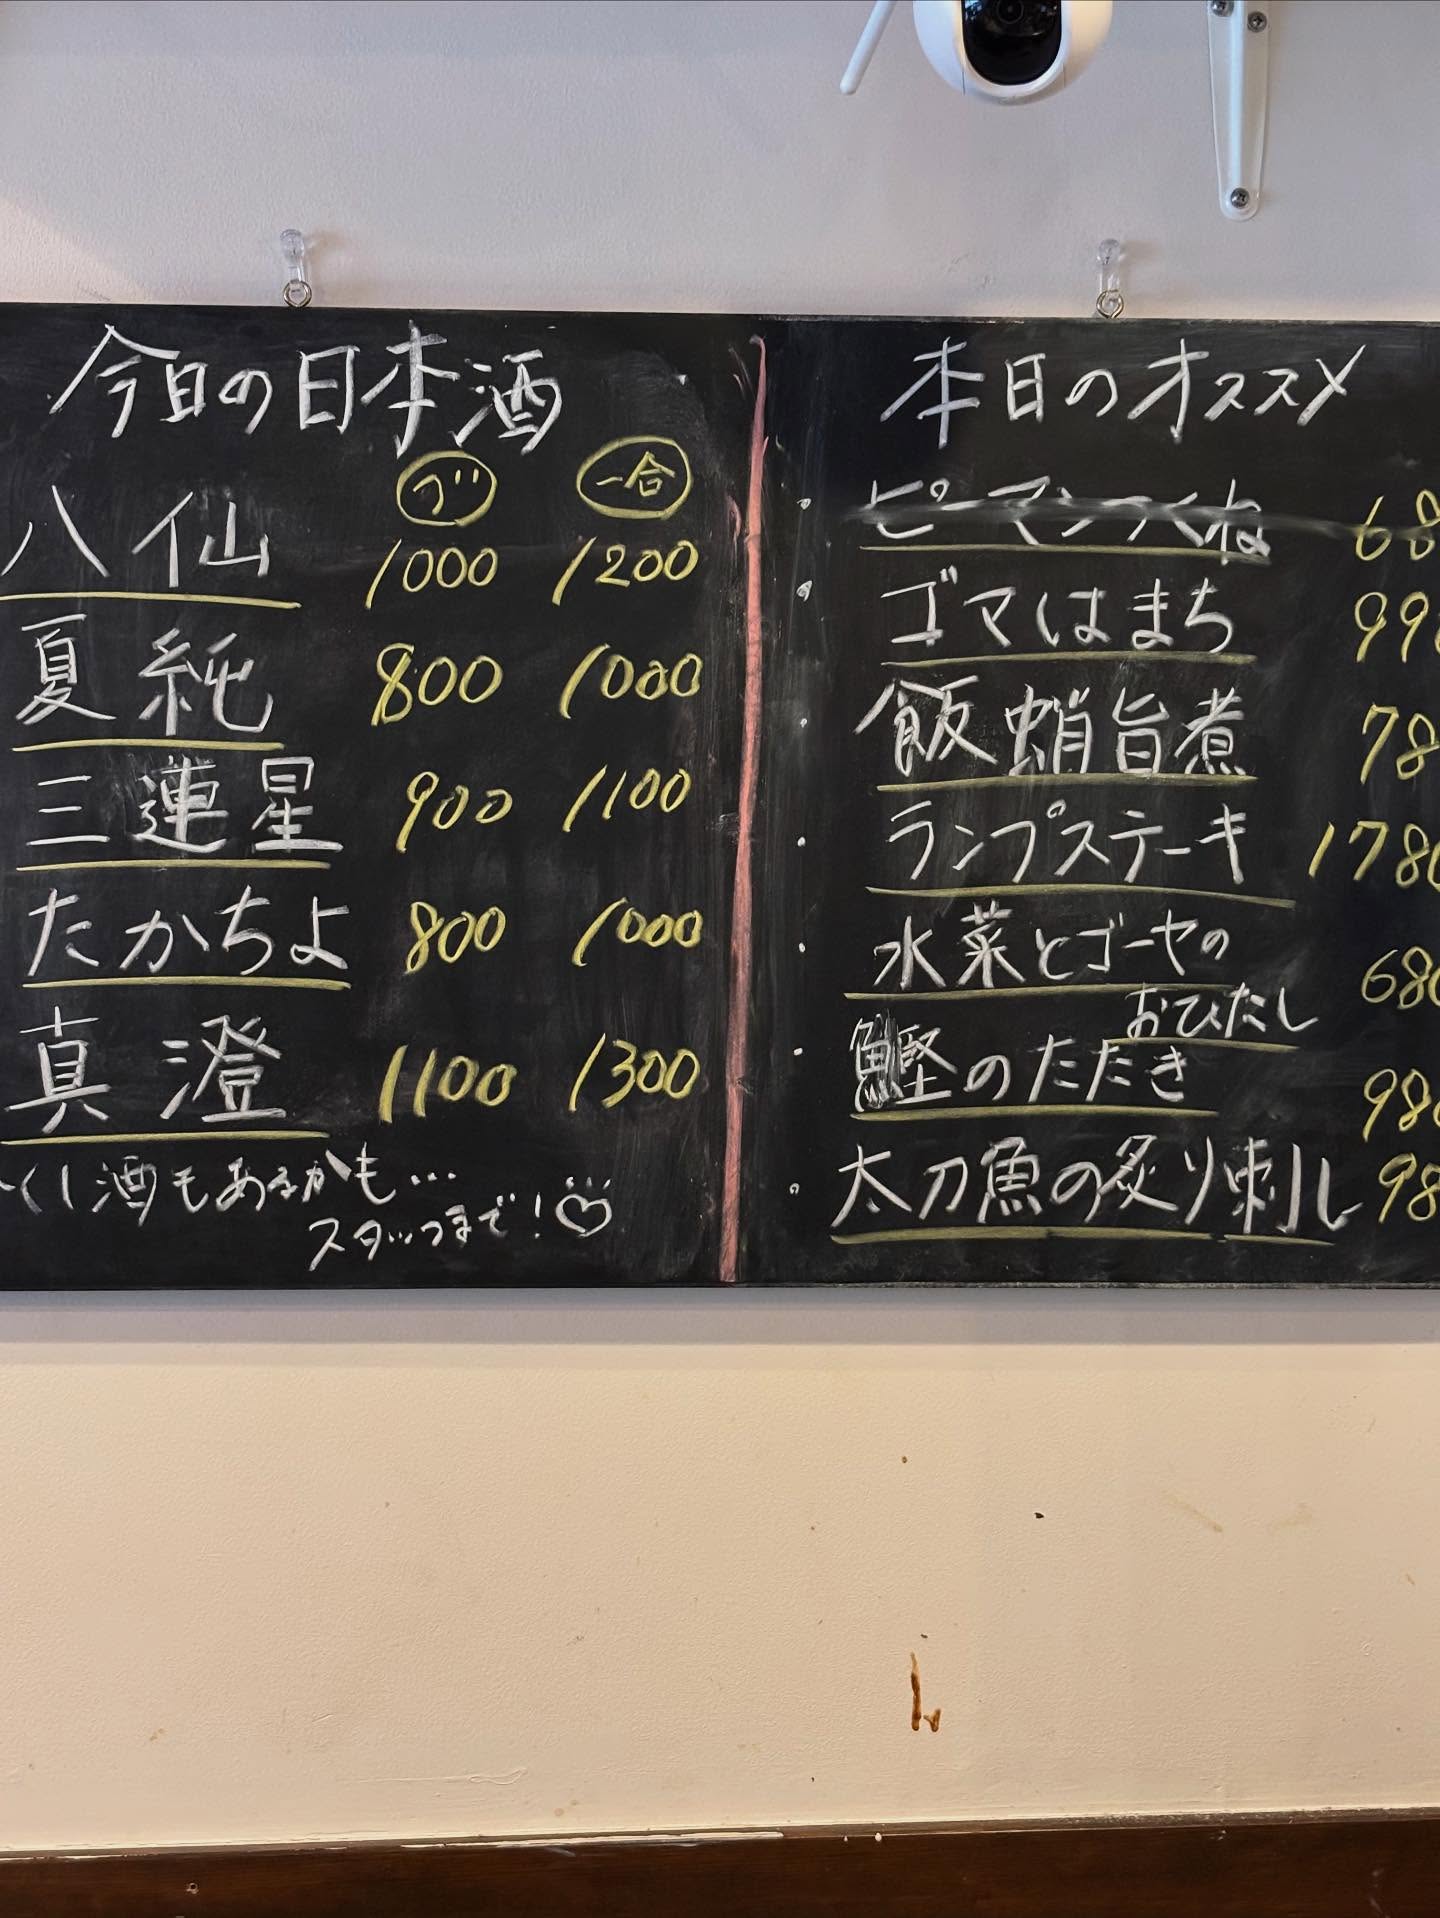 今日の日本酒
グ 一合
八仙 1000 1200
夏純 800 1000
三連星 900 1100
たかちよ 800 1000
真澄 1100 1300
かくし酒もあるかも…
スタッフまで!
本日のオススメ
・ピーマンつくね 68
・ゴマはまち 99
・飯蛸旨煮 78
・ランプステーキ 178
・水菜とゴーヤの
おひたし 68
・鰹のたたき 98
・太刀魚の炙り刺し 98